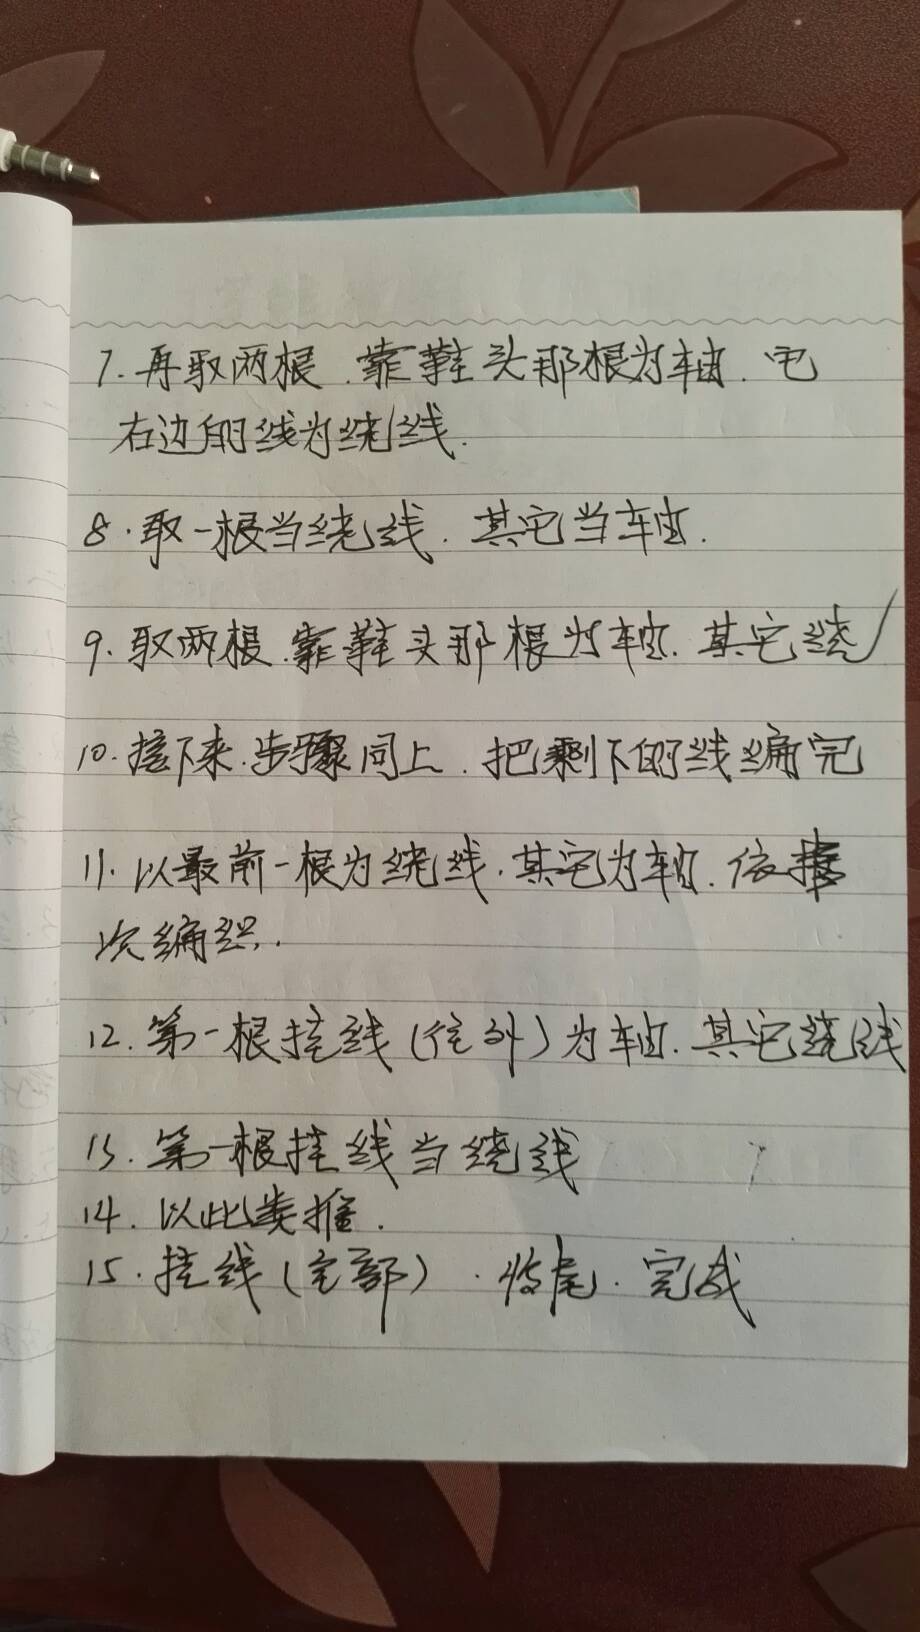 7.再取两根.靠鞋头那根为轴.它
右边的线为绕线.
8.取一根当绕线.其它当轴.
9.取两根.靠鞋头那根为轴.其它绕
10.接下来.步骤同上.把剩下的线编完
11.以最前一根为绕线.其它为轴.依
次编织.
12.第一根挂线(往外)为轴.其它绕线
13.第一根挂线当绕线
14.以此类推.
15.挂线(全部).收尾.完成